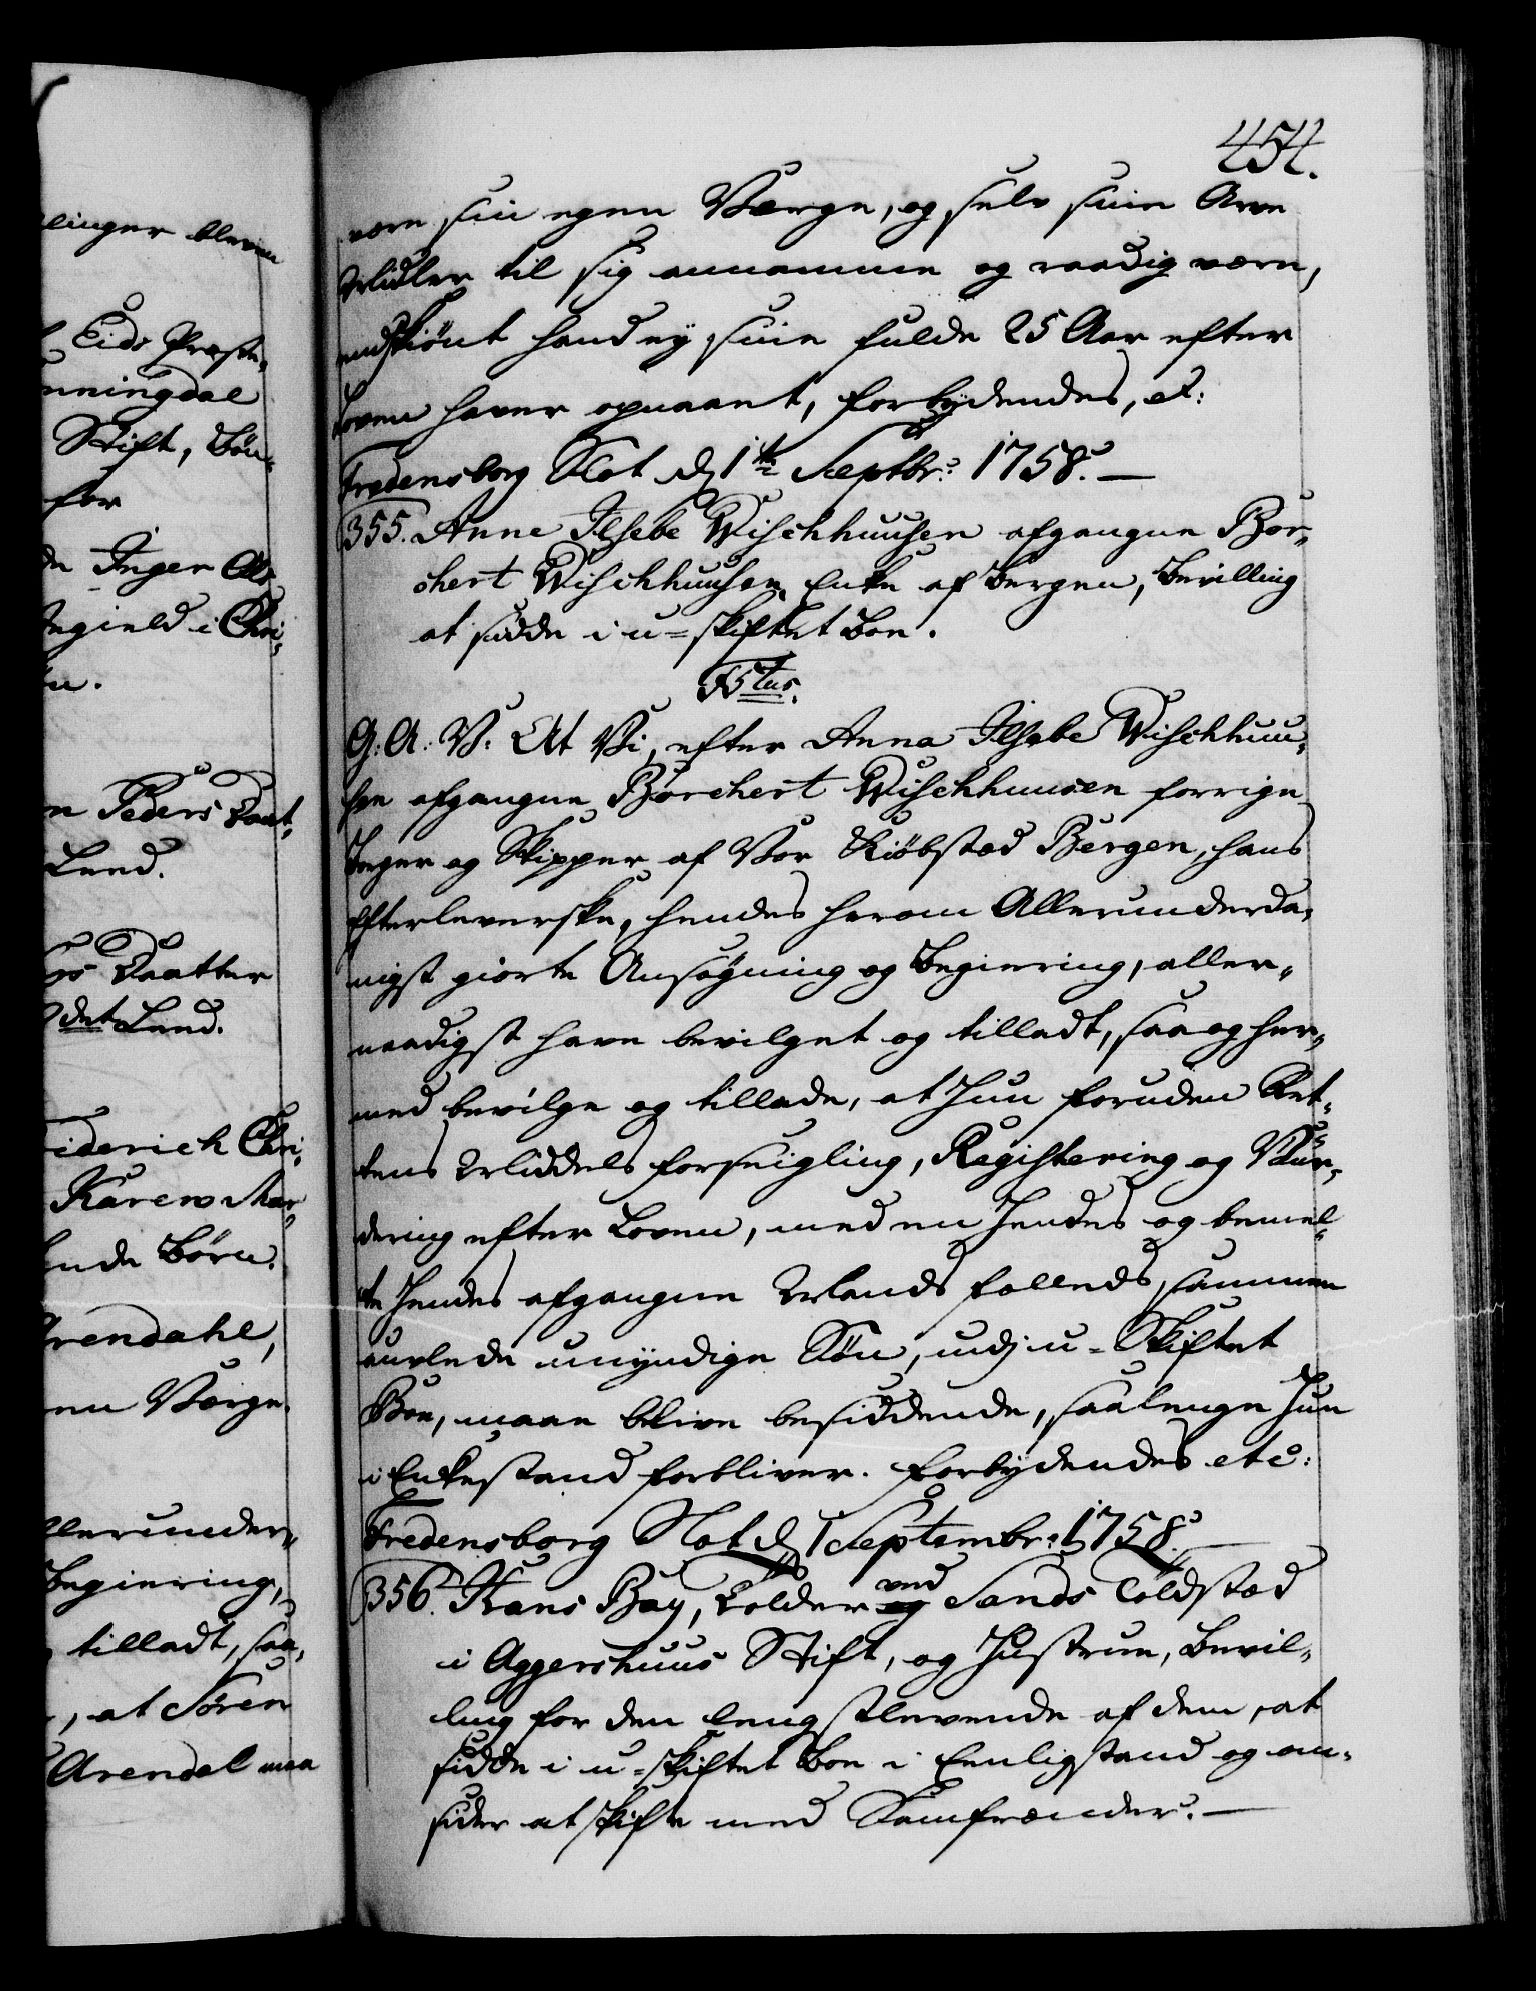 454.
være sin egen Værge, og selv sine Arve
Midler til sig annamme og raadig være,
endskiønt hand ey sine fulde 25 Aar efter
Loven haver opnaaet, forbydendes, et:
Fredensborg Slot d 1te Septbr: 1758. —
355. Anne Ilsebe Wischhuusen afgangne Bor„
chert Wischhuusen Enke af Bergen, Bevilling
at sidde i u=skiftet Boe.
F5tus.
G: A: V: At Vi, efter Anna Ilsebe Wischhuu„
sen afgangne Borchert Wischhuusen forrige
Borger og Skipper af Vor Kiöbstæd Bergen, hans
Efterleverske, hendes herom Allerunderda„
nigst giorte Ansøgning og Begiering, aller„
naadigst have bevilget og tilladt, saa og her„
med bevilge og tillade, at Hun foruden Ret„
tens Middels forseigling, Registering og Vur„
dering efter Loven, med en Hendes og bemel„
te Hendes afgangne Mands fælleds, sammen
avlede umyndige Søn, udj u=Skiftet
Boe, maae blive besiddende, saalenge Hun
i Enkestand forbliver. forbydendes etc:
Fredensborg Slot d 1 Septembr: 1758. —
356. Hans Bay, Tolder ved Sands Toldstæd
i Aggershuus Stift, og Hustrue, Bevil„
ling for den lengstlevende af dem, at
sidde i u=skiftet Boe i Eenligstand og om„
sider at skifte med Samfrænder. —
linger bleven
Eids Præste„
nningdal
Stift, Bøn„
for
Inger Ols„
Tegield i Chri„
n.
n Peders Daat„
Lund.
Daatter
det Lund.
iderich Chri„
Karen Mar„
ende Børn.
Arendahl,
en Værge.
llerunder„
Begiering,
tilladt, saa„
, at Søren
Arendal maa